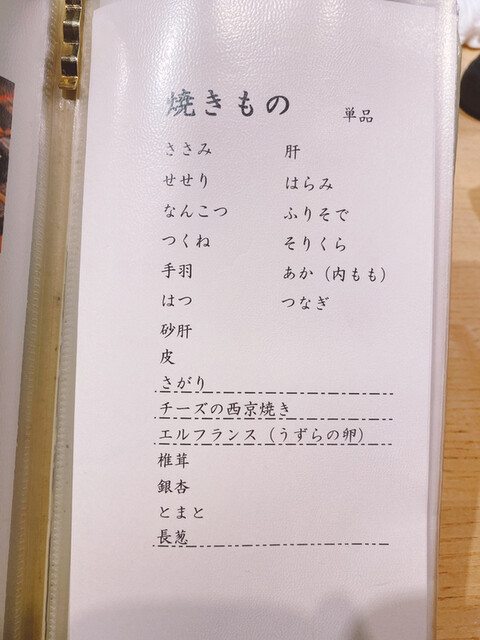 焼きもの 単品
ささみ 肝
せせり はらみ
なんこつ ふりそで
つくね そりくら
手羽 あか（内もも）
はつ つなぎ
砂肝
皮
さがり
チーズの西京焼き
エルフランス（うずらの卵）
椎茸
銀杏
とまと
長葱